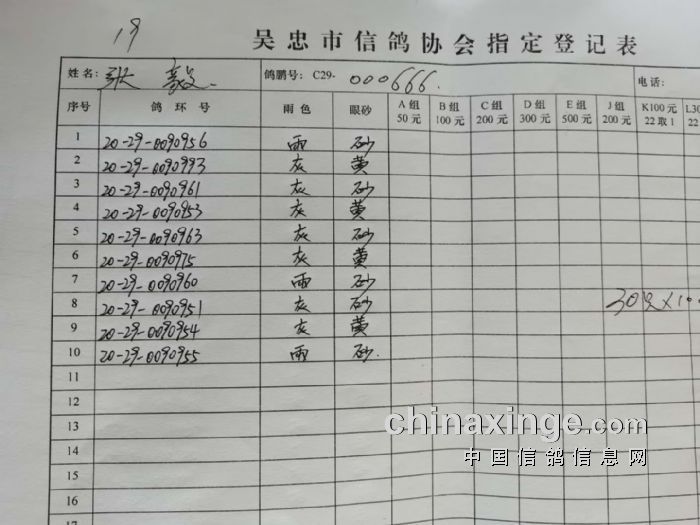 19
吴忠市信鸽协会指定登记表
姓名: 张 毅 鸽鹏号: C29- 000666. 电话:
序号 鸽环号 雨色 眼砂 A组 50元 B组 100元 C组 200元 D组 300元 E组 500元 J组 200元 K100元 22取1 L30 22
1 20-29-0090956 雨 砂
2 20-29-0090993 灰 黄
3 20-29-0090961 灰 砂
4 20-29-0090953 灰 黄
5 20-29-0090963 灰 砂
6 20-29-0090975 灰 黄
7 20-29-0090960 雨 砂
8 20-29-0090951 灰 砂
9 20-29-0090954 灰 黄
10 20-29-0090955 雨 砂.
11
12
13
14
15
16
17
chinaxinge.com
中国信鸽信息网